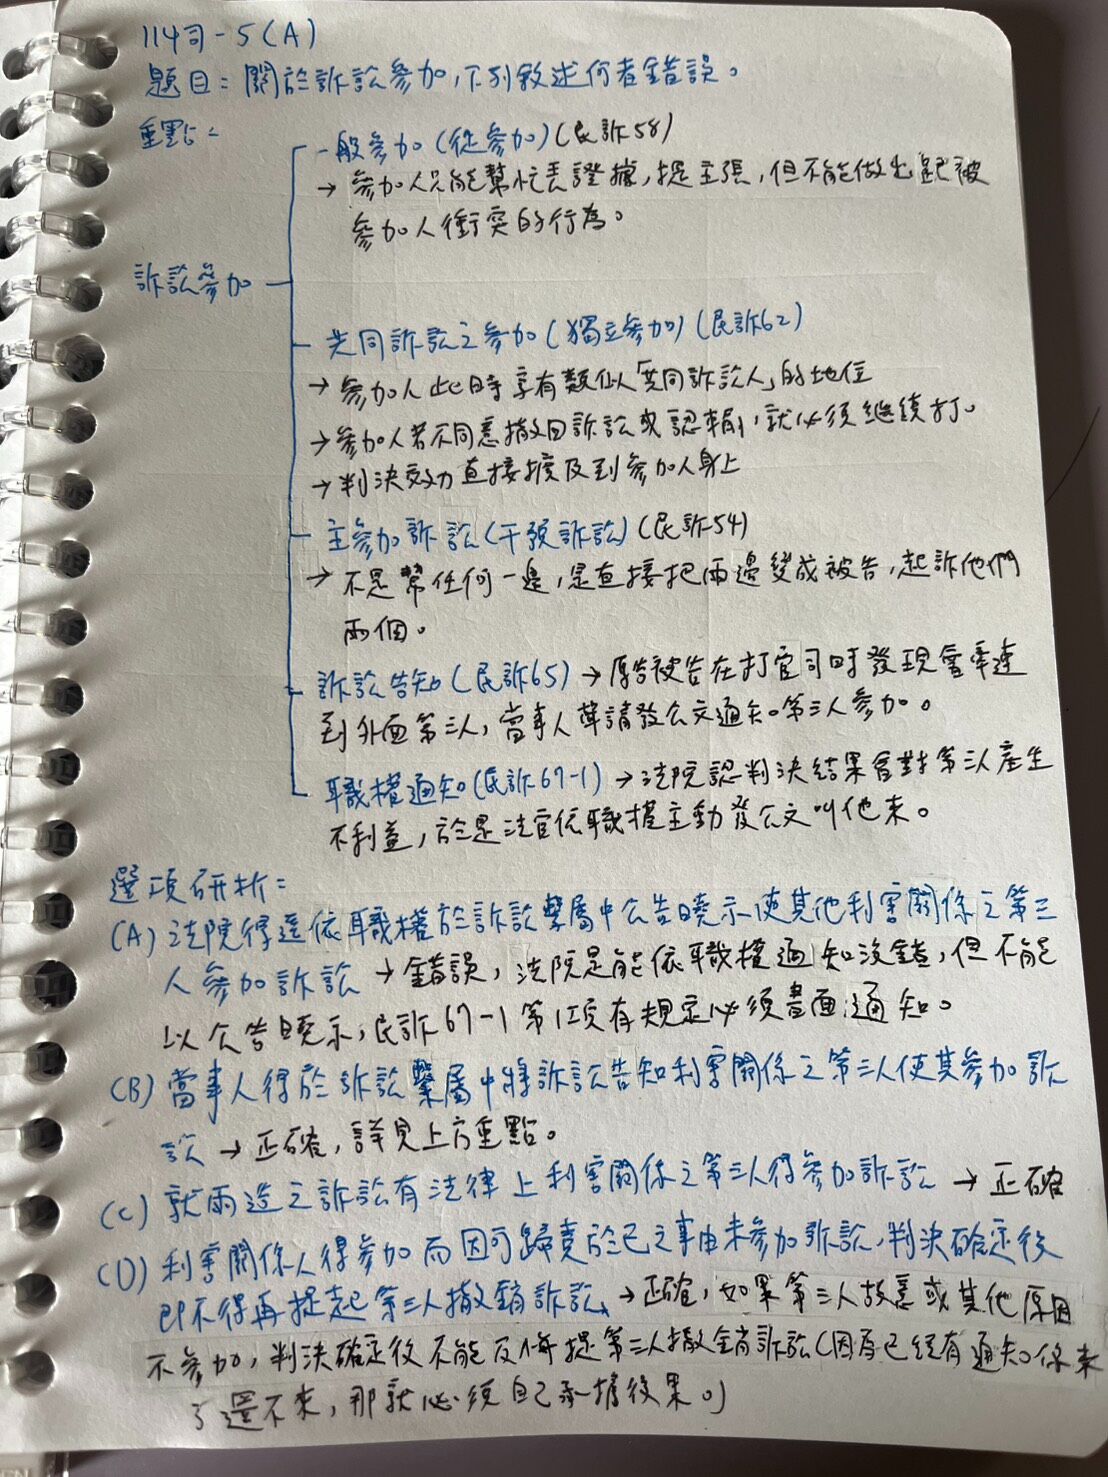 114司-5(A)
題目：關於訴訟參加，下列敘述何者錯誤。
重點：
一般參加(從參加)(民訴58)
→ 參加人只能幫忙丟證據，提主張，但不能做出跟被
參加人衝突的行為。
訴訟參加
共同訴訟之參加(獨立參加)(民訴62)
→ 參加人此時享有類似「共同訴訟人」的地位
→ 參加人若不同意撤回訴訟或認輸，就必須繼續打。
→ 判決效力直接擴及到參加人身上
主參加訴訟(干預訴訟)(民訴54)
→ 不是幫任何一邊，是直接把兩邊變成被告，起訴他們
兩個。
訴訟告知(民訴65) → 原告被告在打官司時發現會牽連
到外面第三人，當事人聲請發公文通知第三人參加。
職權通知(民訴67-1) → 法院認判決結果會對第三人產生
不利益，於是法官依職權主動發公文叫他來。
選項研析：
(A) 法院得逕依職權於訴訟繫屬中公告曉示使其他利害關係之第三
人參加訴訟 → 錯誤，法院是能依職權通知沒錯，但不能
以公告曉示，民訴67-1第1項有規定必須書面通知。
(B) 當事人得於訴訟繫屬中將訴訟告知利害關係之第三人使其參加訴
訟 → 正確，詳見上方重點。
(C) 就兩造之訴訟有法律上利害關係之第三人得參加訴訟 → 正確
(D) 利害關係人得參加而因可歸責於己之事由未參加訴訟，判決確定後
即不得再提起第三人撤銷訴訟 → 正確，如果第三人故意或其他原因
不參加，判決確定後不能反悔提第三人撤銷訴訟(因為已經有通知你來
了還不來，那就必須自己承擔後果。)